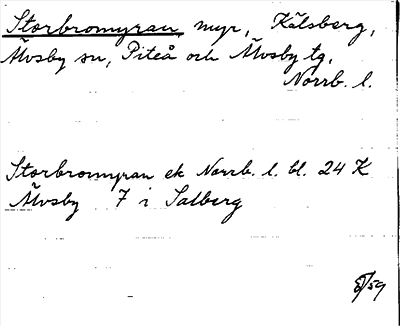 Storbromyran, myr, Kälsberg,
Älvsby sn, Piteå och Älvsby tg,
Norrb. l.
Storbromyran ek Norrb. l. bl. 24 K
Älvsby 7 i Salberg
/59